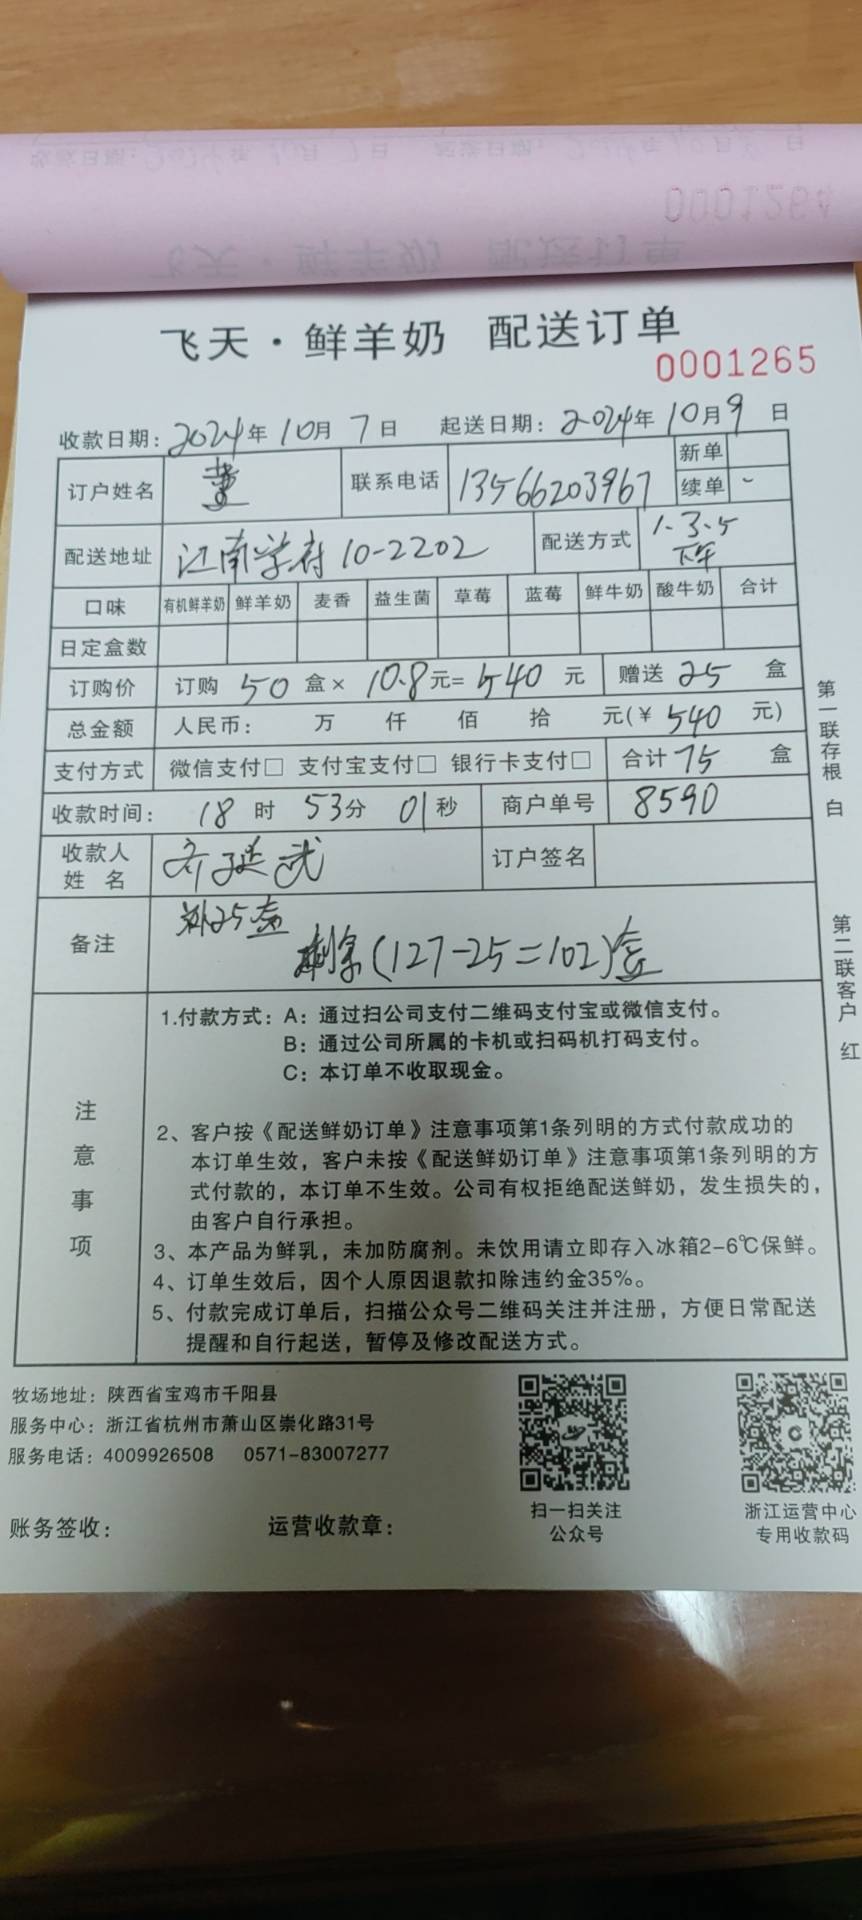 0001264
飞天·鲜羊奶 配送订单
0001265
收款日期: 2024年10月7日 起送日期: 2024年10月9日
订户姓名 董 联系电话 13566203967 新单
续单
配送地址 江南学府 10-2202 配送方式 1.3.5
下午
口味 有机鲜羊奶 鲜羊奶 麦香 益生菌 草莓 蓝莓 鲜牛奶 酸牛奶 合计
日定盒数
订购价 订购 50 盒× 10.8元= 540 元 赠送 25 盒
总金额 人民币: 万 仟 佰 拾 元(¥ 540 元)
支付方式 微信支付□ 支付宝支付□ 银行卡支付□ 合计 75 盒
收款时间: 18 时 53分 01秒 商户单号 8590
收款人
姓 名
订户签名
备注 25盒
剩余(127-25=102)盒
注意事项
1.付款方式: A: 通过扫公司支付二维码支付宝或微信支付。
B: 通过公司所属的卡机或扫码机打码支付。
C: 本订单不收取现金。
2、客户按《配送鲜奶订单》注意事项第1条列明的方式付款成功的
本订单生效，客户未按《配送鲜奶订单》注意事项第1条列明的方
式付款的，本订单不生效。公司有权拒绝配送鲜奶，发生损失的，
由客户自行承担。
3、本产品为鲜乳，未加防腐剂。未饮用请立即存入冰箱2-6℃保鲜。
4、订单生效后，因个人原因退款扣除违约金35%。
5、付款完成订单后，扫描公众号二维码关注并注册，方便日常配送
提醒和自行起送，暂停及修改配送方式。
第一联存根 白
第二联客户 红
牧场地址: 陕西省宝鸡市千阳县
服务中心: 浙江省杭州市萧山区崇化路31号
服务电话: 4009926508 0571-83007277
扫一扫关注
公众号
浙江运营中心
专用收款码
账务签收: 运营收款章: